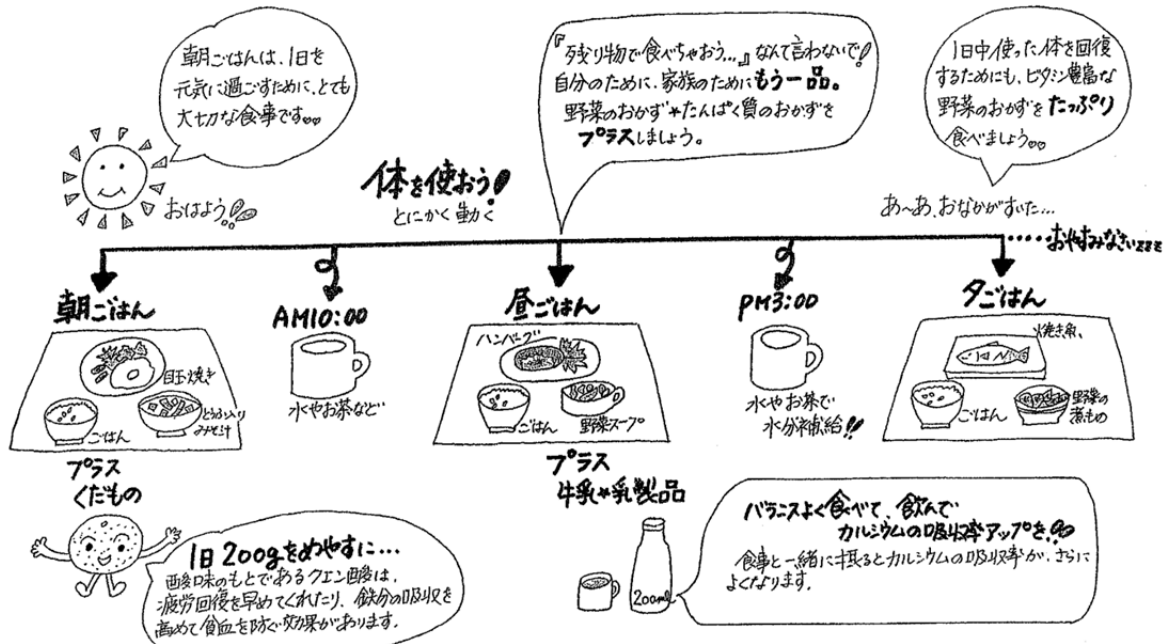 朝ごはんは、1日を
元気に過ごすために、とても
大切な食事です。
『残り物で食べちゃおう…』なんて言わないで!
自分のために、家族のためにもう一品。
野菜のおかず+たんぱく質のおかずを
プラスしましょう。
1日中使った体を回復
するためにも、ビタミン豊富な
野菜のおかずをたっぷり
食べましょう。
おはよう!!
体を使おう!
とにかく動く
あ~あ、おなかがすいた…
おやすみなさいzzz
朝ごはん
目玉焼き
ごはん
とうふ入り
みそ汁
プラス
くだもの
AM10:00
水やお茶など
昼ごはん
ハンバーグ
ごはん
野菜スープ
プラス
牛乳*乳製品
PM3:00
水やお茶で
水分補給!!
夕ごはん
焼き魚
ごはん
野菜の
煮もの
1日200gをめやすに…
酸味のもとであるクエン酸は、
疲労回復を早めてくれたり、鉄分の吸収を
高めて貧血を防ぐ効果があります。
200ml
バランスよく食べて、飲んで
カルシウムの吸収率アップを
食事と一緒に摂るとカルシウムの吸収率が、さらに
よくなります。